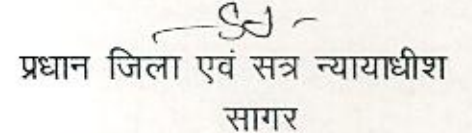 -Sd-
प्रधान जिला एवं सत्र न्यायाधीश
सागर